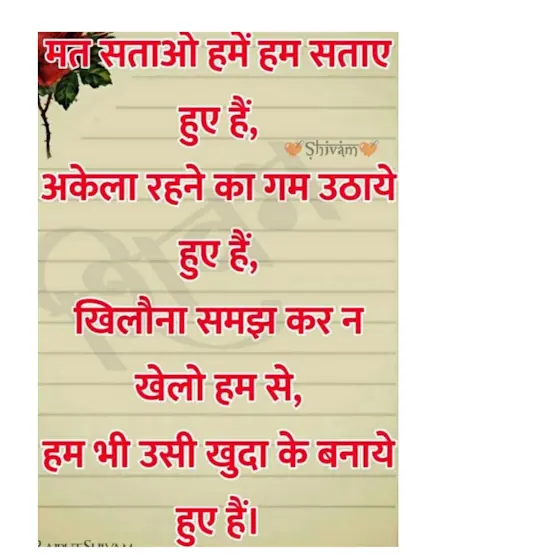 मत सताओ हमें हम सताए
हुए हैं,
Shivam
अकेला रहने का गम उठाये
हुए हैं,
शिवम
खिलौना समझ कर न
खेलो हम से,
हम भी उसी खुदा के बनाये
हुए हैं।